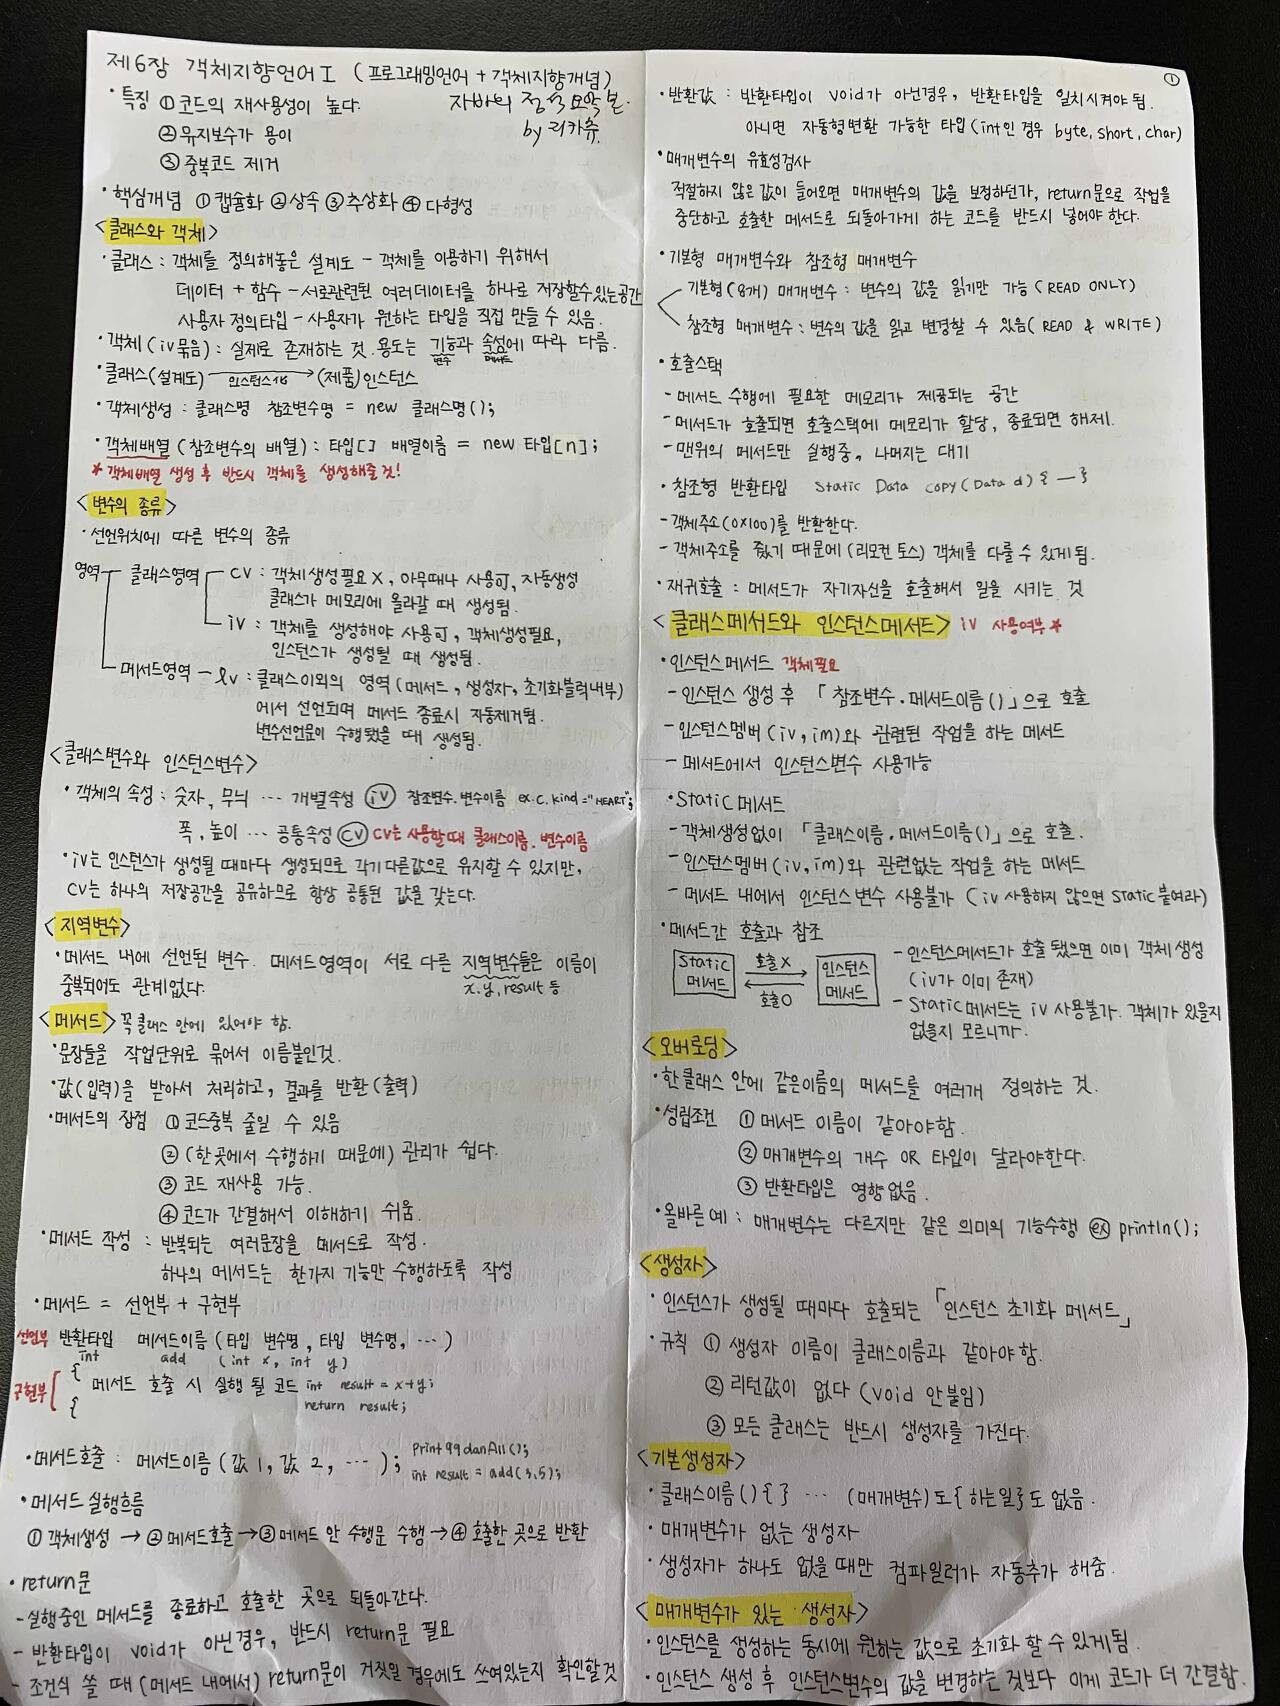 제6장 객체지향언어 I (프로그래밍언어 + 객체지향개념)
자바의 정석 요약본.
by 리카츄.
• 특징 ① 코드의 재사용성이 높다.
② 유지보수가 용이
③ 중복코드 제거
• 핵심개념 ① 캡슐화 ② 상속 ③ 추상화 ④ 다형성
<클래스와 객체>
• 클래스 : 객체를 정의해놓은 설계도 - 객체를 이용하기 위해서
데이터 + 함수 - 서로관련된 여러데이터를 하나로 저장할수있는공간
사용자 정의타입 - 사용자가 원하는 타입을 직접 만들 수 있음.
• 객체 (iv묶음) : 실제로 존재하는 것. 용도는 기능과 속성에 따라 다름.
변수 메서드
• 클래스(설계도) 인스턴스화→ (제품)인스턴스
• 객체생성 : 클래스명 참조변수명 = new 클래스명();
• 객체배열 (참조변수의 배열) : 타입[] 배열이름 = new 타입[n];
* 객체배열 생성 후 반드시 객체를 생성해줄것!
<변수의 종류>
• 선언위치에 따른 변수의 종류
영역 클래스영역 CV : 객체생성필요X, 아무때나 사용可, 자동생성
클래스가 메모리에 올라갈 때 생성됨.
iv : 객체를 생성해야 사용可, 객체생성필요,
인스턴스가 생성될 때 생성됨.
메서드영역 - lv : 클래스이외의 영역 (메서드, 생성자, 초기화블럭내부)
에서 선언되며 메서드 종료시 자동제거됨.
변수선언문이 수행됐을 때 생성됨.
<클래스변수와 인스턴스변수>
• 객체의 속성 : 숫자, 무늬 … 개별속성 (iv) 참조변수.변수이름 ex.c.kind="HEART";
폭, 높이 … 공통속성 (CV) CV는 사용할때 클래스이름.변수이름
• iv는 인스턴스가 생성될 때마다 생성되므로 각기 다른값으로 유지할 수 있지만,
CV는 하나의 저장공간을 공유하므로 항상 공통된 값을 갖는다.
<지역변수>
• 메서드 내에 선언된 변수. 메서드영역이 서로 다른 지역변수들은 이름이
중복되어도 관계없다. x.y, result 등
<메서드> 꼭 클래스 안에 있어야 함.
• 문장들을 작업단위로 묶어서 이름붙인것.
• 값(입력)을 받아서 처리하고, 결과를 반환(출력)
• 메서드의 장점 ① 코드중복 줄일 수 있음
② (한곳에서 수행하기 때문에) 관리가 쉽다.
③ 코드 재사용 가능.
④ 코드가 간결해서 이해하기 쉬움.
• 메서드 작성 : 반복되는 여러문장을 메서드로 작성.
하나의 메서드는 한가지 기능만 수행하도록 작성
• 메서드 = 선언부 + 구현부
선언부 반환타입 메서드이름 (타입 변수명, 타입 변수명, …)
int add (int x, int y)
{
구현부 메서드 호출 시 실행 될 코드 int result = x+y;
{ return result;
• 메서드호출 : 메서드이름 (값1, 값2, …); print99danAll();
int result = add(3,5);
• 메서드 실행흐름
① 객체생성 → ② 메서드호출 → ③ 메서드 안 수행문 수행 → ④ 호출한 곳으로 반환
• return문
- 실행중인 메서드를 종료하고 호출한 곳으로 되돌아간다.
- 반환타입이 void가 아닌경우, 반드시 return문 필요
- 조건식 쓸 때 (메서드 내에서) return문이 거짓일 경우에도 쓰여있는지 확인할것
①
• 반환값 : 반환타입이 void가 아닌경우, 반환타입을 일치시켜야 됨.
아니면 자동형변환 가능한 타입(int인 경우 byte, short, char)
• 매개변수의 유효성검사
적절하지 않은 값이 들어오면 매개변수의 값을 보정하던가, return문으로 작업을
중단하고 호출한 메서드로 되돌아가게 하는 코드를 반드시 넣어야 한다.
• 기본형 매개변수와 참조형 매개변수
기본형(8개) 매개변수 : 변수의 값을 읽기만 가능 (READ ONLY)
참조형 매개변수 : 변수의 값을 읽고 변경할 수 있음 (READ & WRITE)
• 호출스택
- 메서드 수행에 필요한 메모리가 제공되는 공간
- 메서드가 호출되면 호출스택에 메모리가 할당, 종료되면 해제.
- 맨위의 메서드만 실행중, 나머지는 대기
• 참조형 반환타입 static Data copy(Data d) { — }
- 객체주소(0x100)를 반환한다.
- 객체주소를 줬기 때문에 (리모컨 토스) 객체를 다룰 수 있게됨.
• 재귀호출 : 메서드가 자기자신을 호출해서 일을 시키는 것
<클래스메서드와 인스턴스메서드> iv 사용여부*
• 인스턴스메서드 객체필요
- 인스턴스 생성 후 「참조변수.메서드이름()」으로 호출
- 인스턴스멤버 (iv, im)와 관련된 작업을 하는 메서드
- 메서드에서 인스턴스변수 사용가능
• static메서드
- 객체생성없이 「클래스이름.메서드이름()」으로 호출.
- 인스턴스멤버 (iv, im)와 관련없는 작업을 하는 메서드
- 메서드 내에서 인스턴스변수 사용불가 (iv 사용하지 않으면 static 붙여라)
• 메서드간 호출과 참조
static 메서드 호출X 호출O 인스턴스 메서드
- 인스턴스메서드가 호출 됐으면 이미 객체생성
(iv가 이미 존재)
- static메서드는 iv 사용불가. 객체가 있을지
없을지 모르니까.
<오버로딩>
• 한클래스 안에 같은이름의 메서드를 여러개 정의하는 것.
• 성립조건 ① 메서드 이름이 같아야함.
② 매개변수의 개수 OR 타입이 달라야한다.
③ 반환타입은 영향없음.
• 올바른예 : 매개변수는 다르지만 같은 의미의 기능수행 ex println();
<생성자>
• 인스턴스가 생성될 때마다 호출되는 「인스턴스 초기화 메서드」
• 규칙 ① 생성자 이름이 클래스이름과 같아야함.
② 리턴값이 없다 (void 안붙임)
③ 모든 클래스는 반드시 생성자를 가진다.
<기본생성자>
• 클래스이름(){ } … (매개변수)도{하는일}도 없음.
• 매개변수가 없는 생성자
• 생성자가 하나도 없을 때만 컴파일러가 자동추가 해줌.
<매개변수가 있는 생성자>
• 인스턴스를 생성하는 동시에 원하는 값으로 초기화 할 수 있게됨.
• 인스턴스 생성 후 인스턴스변수의 값을 변경하는 것보다 이게 코드가 더 간결함.